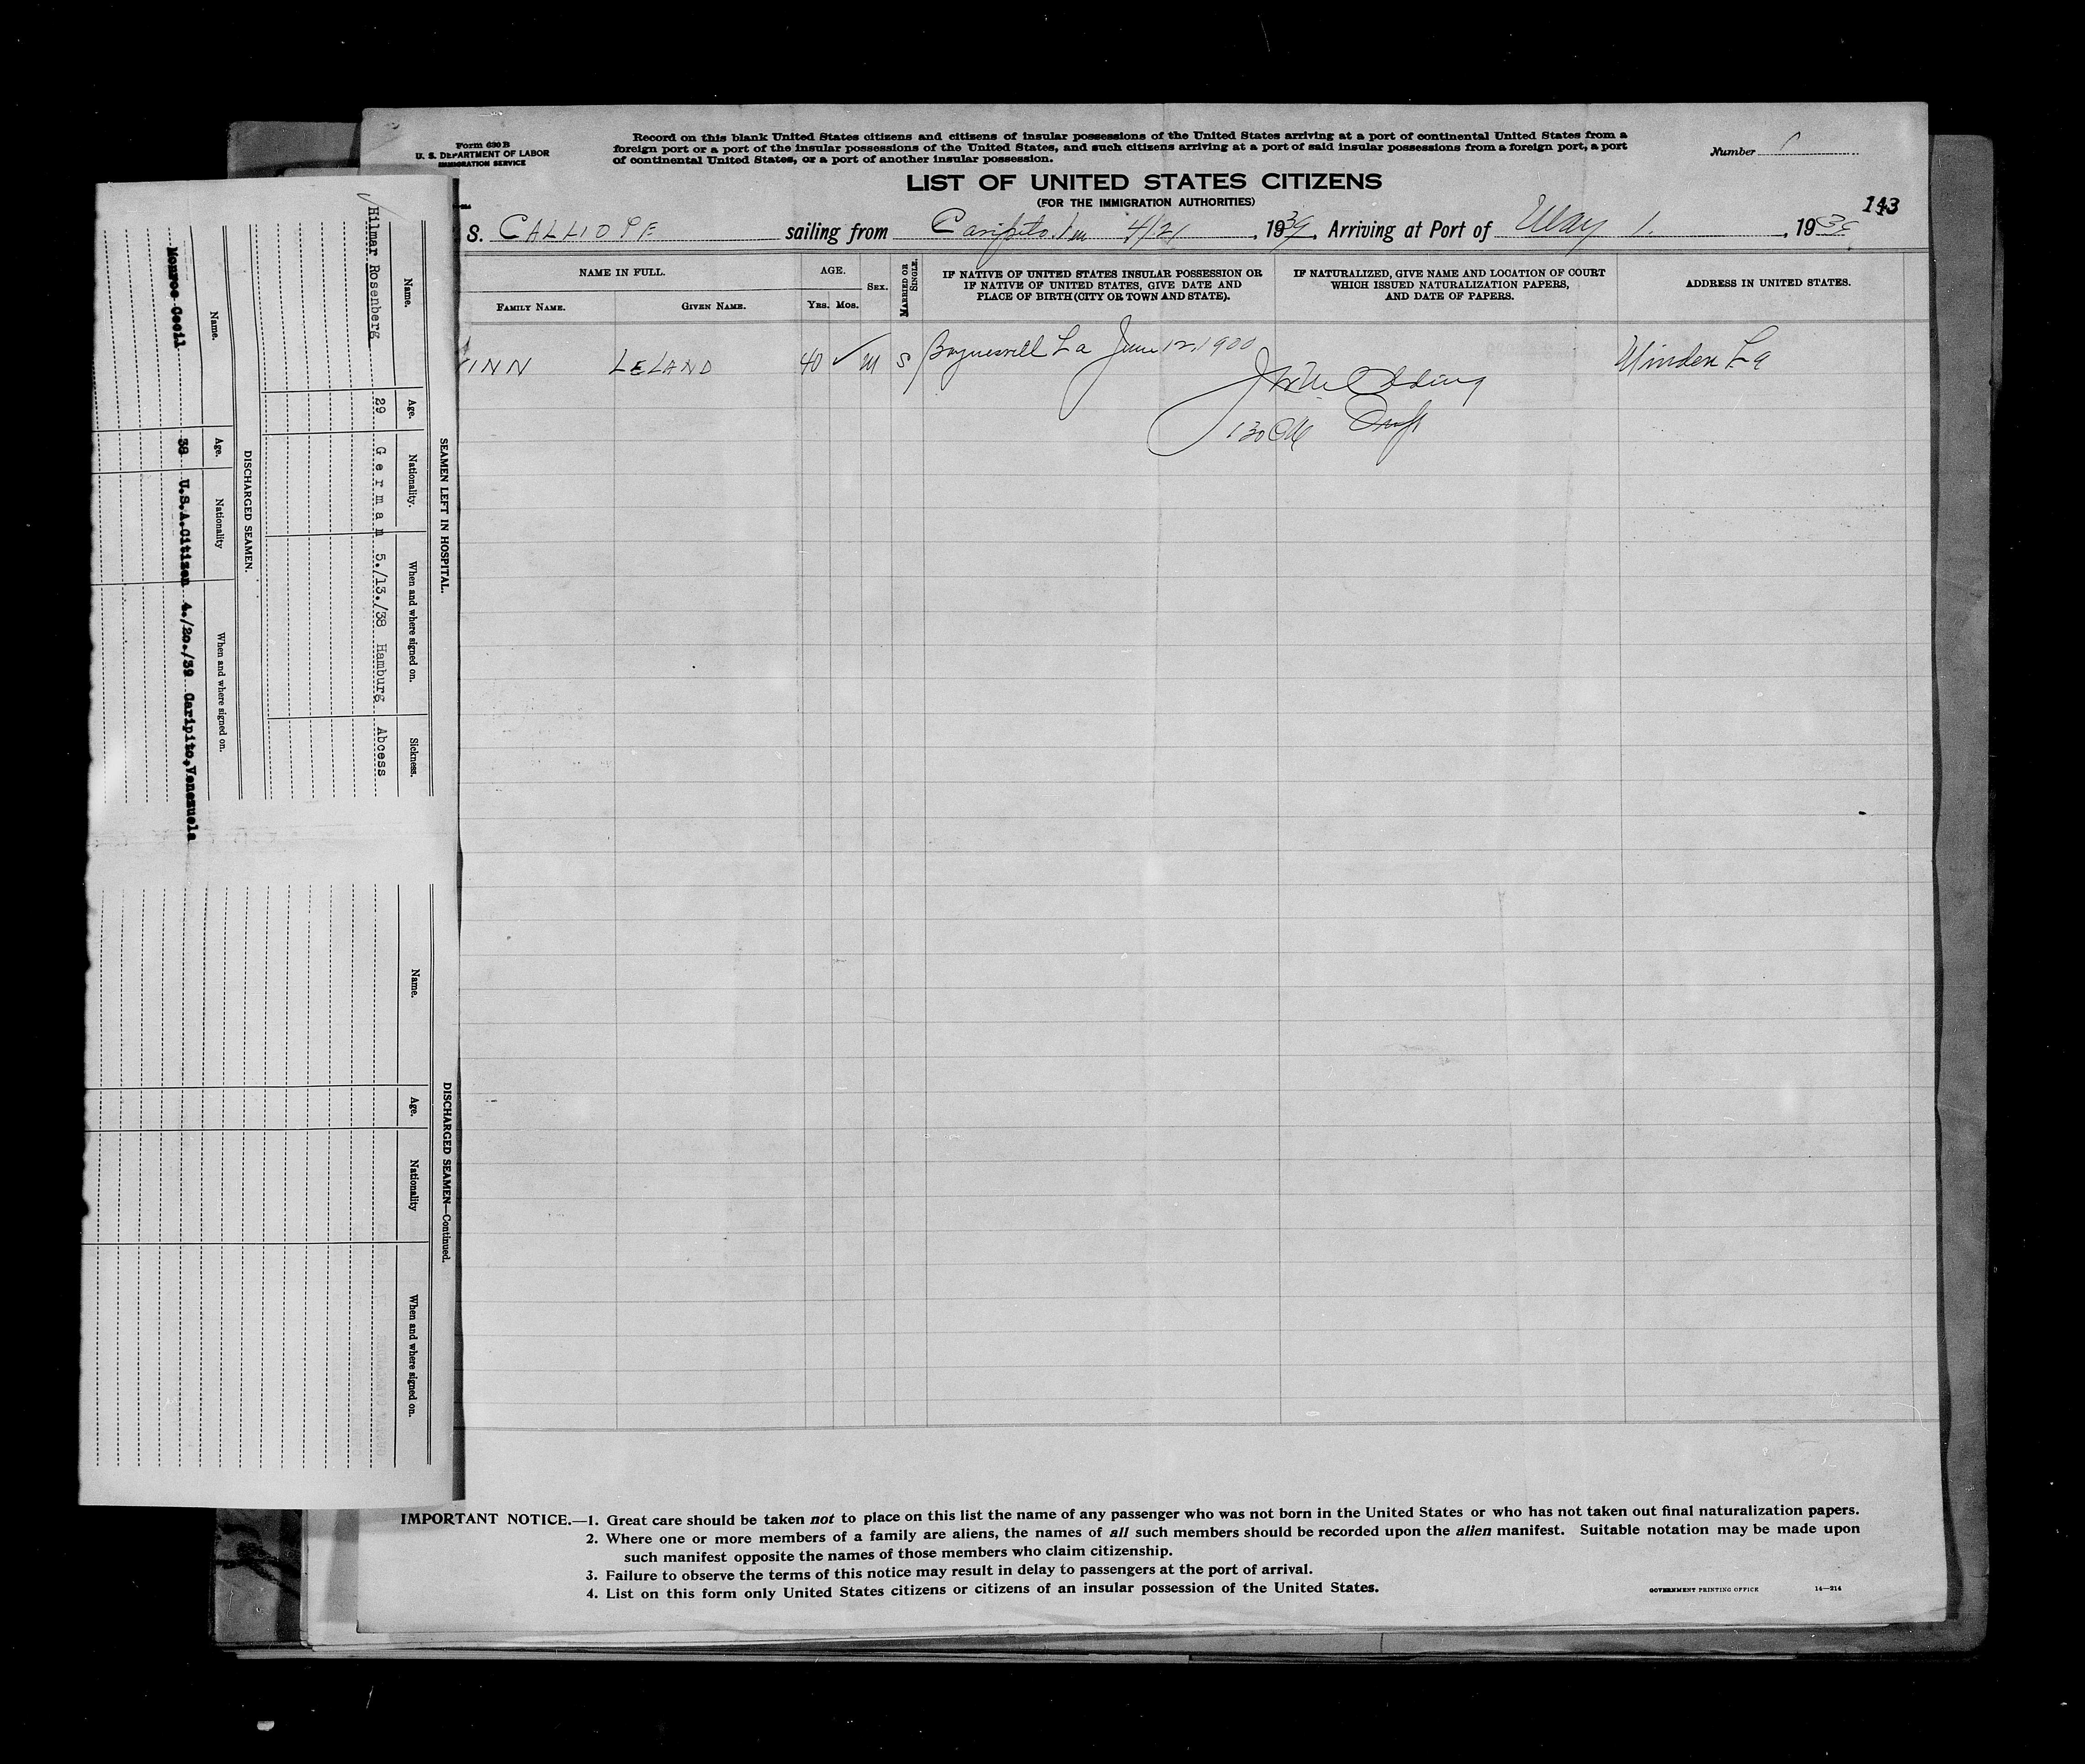 Form 630 B
U. S. DEPARTMENT OF LABOR
IMMIGRATION SERVICE
Record on this blank United States citizens and citizens of insular possessions of the United States arriving at a port of continental United States from a
foreign port or a port of the insular possessions of the United States, and such citizens arriving at a port of said insular possessions from a foreign port, a port
of continental United States, or a port of another insular possession.
Number
LIST OF UNITED STATES CITIZENS
(FOR THE IMMIGRATION AUTHORITIES)
143
S. CALLIOPE sailing from Caripito 4/21, 1939, Arriving at Port of May 1., 193
NAME IN FULL.
AGE.
SEX.
MARRIED OR SINGLE.
IF NATIVE OF UNITED STATES INSULAR POSSESSION OR
IF NATIVE OF UNITED STATES, GIVE DATE AND
PLACE OF BIRTH (CITY OR TOWN AND STATE).
IF NATURALIZED, GIVE NAME AND LOCATION OF COURT
WHICH ISSUED NATURALIZATION PAPERS,
AND DATE OF PAPERS.
ADDRESS IN UNITED STATES.
FAMILY NAME. GIVEN NAME. YRS. MOS.
INN LELAND 40 M S La June 12, 1900 Minden La
IMPORTANT NOTICE.—1. Great care should be taken not to place on this list the name of any passenger who was not born in the United States or who has not taken out final naturalization papers.
2. Where one or more members of a family are aliens, the names of all such members should be recorded upon the alien manifest. Suitable notation may be made upon
such manifest opposite the names of those members who claim citizenship.
3. Failure to observe the terms of this notice may result in delay to passengers at the port of arrival.
4. List on this form only United States citizens or citizens of an insular possession of the United States.
GOVERNMENT PRINTING OFFICE 14—214
SEAMEN LEFT IN HOSPITAL.
Name. Age. Nationality. When and where signed on. Sickness.
Hilmar Rosenberg 29 German 5./13./38 Hamburg Abcess
DISCHARGED SEAMEN.
Name. Age. Nationality When and where signed on.
Monroe Cecil 38 U.S.A.Citizen 4./20./39 Caripito,Venezuela
DISCHARGED SEAMEN—Continued.
Name. Age. Nationality When and where signed on.